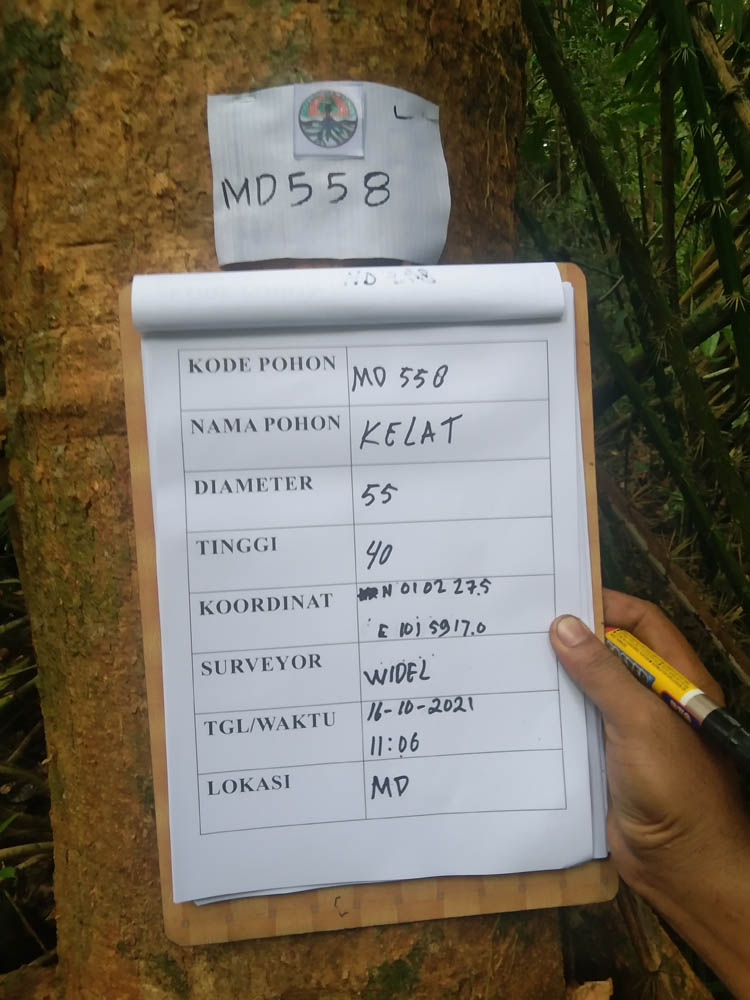 MD558
KODE POHON MD 558
NAMA POHON KELAT
DIAMETER 55
TINGGI 40
KOORDINAT N 01 02 27.5
E 101 59 17.0
SURVEYOR WIDEL
TGL/WAKTU 16-10-2021
11:06
LOKASI MD